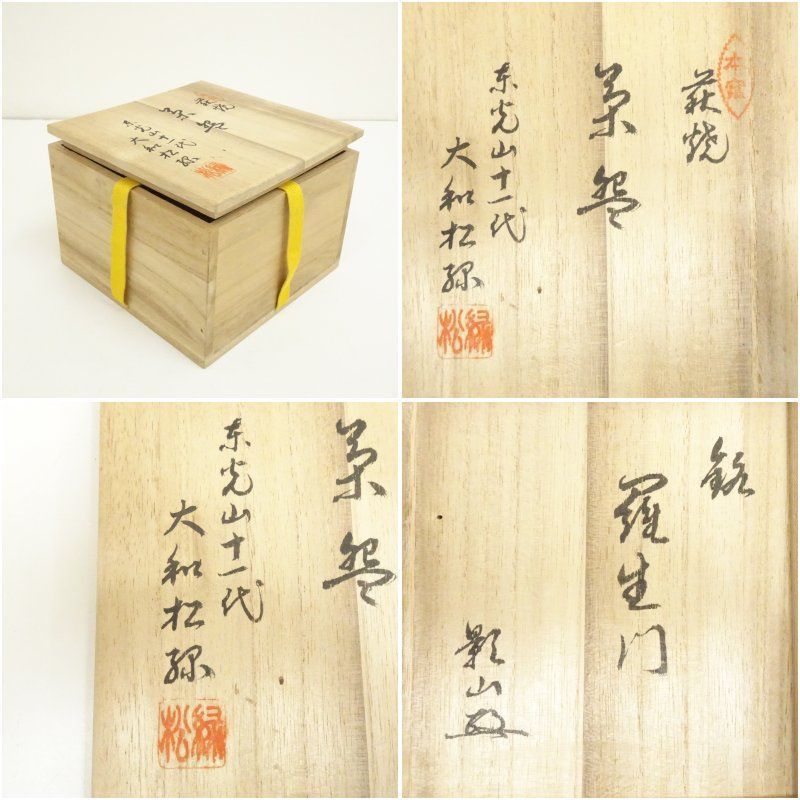 萩焼
茶盌
東光山十一代
大和松緑
松緑
本窯
萩焼
茶盌
東光山十一代
大和松緑
松緑
茶盌
東光山十一代
大和松緑
松緑
銘
羅生門
影山